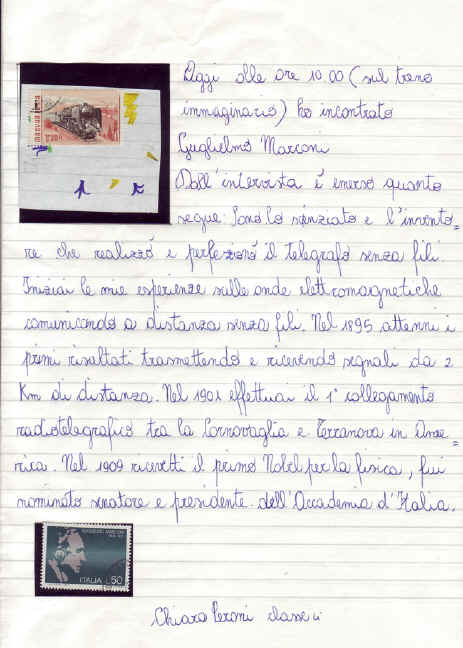 Oggi alle ore 10.00 (sul treno
immaginario) ho incontrato
Guglielmo Marconi
Dall'intervista é emerso quanto
segue: Sono lo scienziato e l'invento=
re che realizzó e perfezionó il telegrafo senza fili
Iniziai le mie esperienze sulle onde elettromagnetiche
comunicando a distanza senza fili. Nel 1895 ottenni i
primi risultati trasmettendo e ricevendo segnali da 2
Km di distanza. Nel 1901 effettuai il 1° collegamento
radiotelegrafico tra la Cornovaglia e Terranova in Ame=
rica. Nel 1909 ricevetti il primo Nobel per la fisica, fui
nominato senatore e presidente dell'Accademia d'Italia.
GUGLIELMO MARCONI
ITALIA L.50
Chiara Peroni classe